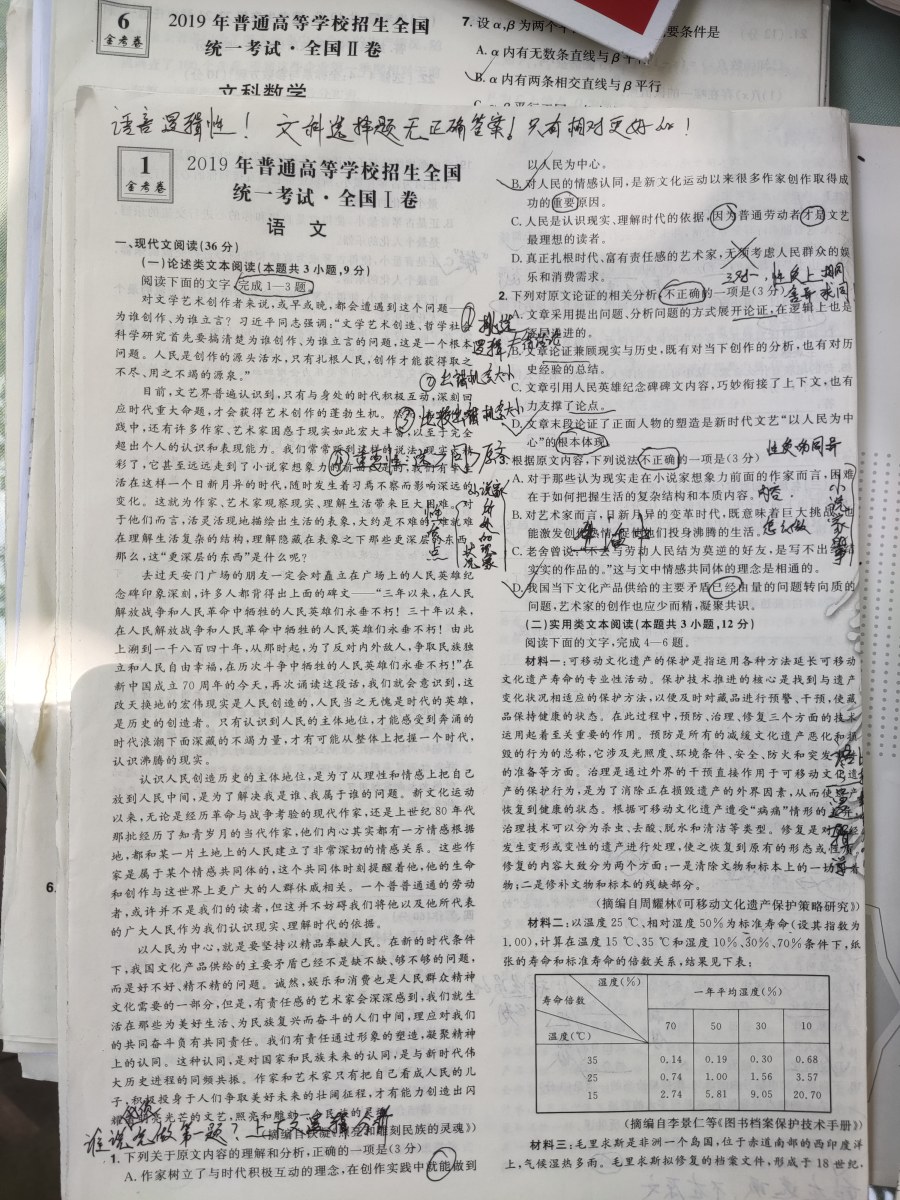 6
金考卷
2019年普通高等学校招生全国
统一考试·全国Ⅱ卷
文科数学
7. 设α,β为两个平
要条件是
A. α内有无数条直线与β平行
B. α内有两条相交直线与β平行
语言逻辑性！ 文科选择题无正确答案！只有相对更好的！
1
金考卷
2019年普通高等学校招生全国
统一考试·全国Ⅰ卷
语 文
一、现代文阅读(36分)
(一)论述类文本阅读(本题共3小题,9分)
阅读下面的文字,完成1—3题。
对文学艺术创作者来说,或早或晚,都会遭遇到这个问题——
为谁创作、为谁立言？习近平同志强调:“文学艺术创造、哲学社会
科学研究首先要搞清楚为谁创作、为谁立言的问题,这是一个根本
问题。人民是创作的源头活水,只有扎根人民,创作才能获得取之
不尽、用之不竭的源泉。”
目前,文艺界普遍认识到,只有与身处的时代积极互动,深刻回
应时代重大命题,才会获得艺术创作的蓬勃生机。
践中,还有许多作家、艺术家困惑于现实如此宏大丰富,以至于完全
超出个人的认识和表现能力。我们常常听到这样的说法:现实太精
彩了,它甚至远远走到了小说家想象力的前
活在这样一个日新月异的时代,随时发生着习焉不察而影响深远的
变化。这就为作家、艺术家观察现实、理解生活带来巨大困难。对
于他们而言,活灵活现地描绘出生活的表象,大约是不难的,难就难
在理解生活复杂的结构,理解隐藏在表象之下那些更深层的东西。
那么,这“更深层的东西”是什么呢？
去过天安门广场的朋友一定会对矗立在广场上的人民英雄纪
念碑印象深刻,许多人都背得出上面的碑文——“三年以来,在人民
解放战争和人民革命中牺牲的人民英雄们永垂不朽！三十年以来,
在人民解放战争和人民革命中牺牲的人民英雄们永垂不朽！由此
上溯到一千八百四十年,从那时起,为了反对内外敌人,争取民族独
立和人民自由幸福,在历次斗争中牺牲的人民英雄们永垂不朽！”在
新中国成立70周年的今天,再次诵读这段话,我们就会意识到,这
改天换地的宏伟现实是人民创造的,人民当之无愧是时代的英雄,
是历史的创造者。只有认识到人民的主体地位,才能感受到奔涌的
时代浪潮下面深藏的不竭力量,才有可能从整体上把握一个时代,
认识沸腾的现实。
认识人民创造历史的主体地位,是为了从理性和情感上把自己
放到人民中间,是为了解决我是谁、我属于谁的问题。新文化运动
以来,无论是经历革命与战争考验的现代作家,还是上世纪80年代
那批经历了知青岁月的当代作家,他们内心其实都有一方情感根据
地,都和某一片土地上的人民建立了非常深切的情感关系。这些作
家是属于某个情感共同体的,这个共同体时刻提醒着他,他的生命
和创作与这世界上更广大的人群休戚相关。一个普普通通的劳动
者,或许并不是我们的读者,但这并不妨碍我们将他以及他所代表
的广大人民作为我们认识现实、理解时代的依据。
以人民为中心,就是要坚持以精品奉献人民。在新的时代条件
下,我国文化产品供给的主要矛盾已经不是缺不缺、够不够的问题,
而是好不好、精不精的问题。诚然,娱乐和消费也是人民群众精神
文化需要的一部分,但是,有责任感的艺术家会深深感到,我们就生
活在那些为美好生活、为民族复兴而奋斗的人们中间,理应对我们
的共同奋斗负有共同责任。我们有责任通过形象的塑造,凝聚精神
上的认同。这种认同,是对国家和民族未来的认同,是与新时代伟
大历史进程的同频共振。作家和艺术家只有把自己看成人民的儿
子,积极投身于人们争取美好未来的壮阔征程,才有能力创造出闪
谁说先做第一题？上下文逻辑分析
1. 下列关于原文内容的理解和分析,正确的一项是(3分)
A. 作家树立了与时代积极互动的理念,在创作实践中就能做到
以人民为中心。
B. 对人民的情感认同,是新文化运动以来很多作家创作取得成
功的重要原因。
C. 人民是认识现实、理解时代的依据,因为普通劳动者才是文艺
最理想的读者。
D. 真正扎根时代、富有责任感的艺术家,无须考虑人民群众的娱
乐和消费需求。
2. 下列对原文论证的相关分析,不正确的一项是(3分)
A. 文章采用提出问题、分析问题的方式展开论证,在逻辑上也是
层层递进的。
B. 文章论证兼顾现实与历史,既有对当下创作的分析,也有对历
史经验的总结。
C. 文章引用人民英雄纪念碑碑文内容,巧妙衔接了上下文,也有
力支撑了论点。
D. 文章末段论证了正面人物的塑造是新时代文艺“以人民为中
心”的根本体现。
根据原文内容,下列说法不正确的一项是(3分)
A. 对于那些认为现实走在小说家想象力前面的作家而言,困难
在于如何把握生活的复杂结构和本质内容。
B. 对艺术家而言,日新月异的变革时代,既意味着巨大挑战,也
能激发创作热情,促使他们投身沸腾的生活。
C. 老舍曾说:“不去与劳动人民结为莫逆的好友,是写不出
实实的作品的。”这与文中情感共同体的理念是相通的。
D. 我国当下文化产品供给的主要矛盾已经由量的问题转向质的
问题,艺术家的创作也应少而精,凝聚共识。
(二)实用类文本阅读(本题共3小题,12分)
阅读下面的文字,完成4—6题。
材料一:可移动文化遗产的保护是指运用各种方法延长可移动
文化遗产寿命的专业性活动。保护技术推进的核心是找到与遗产
变化状况相适应的保护方法,以便及时对藏品进行预警、干预,使藏
品保持健康的状态。在此过程中,预防、治理、修复三个方面的技术
运用起着至关重要的作用。预防是所有的减缓文化遗产恶化和损
毁的行为的总称,它涉及光照度、环境条件、安全、防火和突发
的准备等方面。治理是通过外界的干预直接作用于可移动文化遗
产的保护行为,是为了消除正在损毁遗产的外界因素,从而使
恢复到健康的状态。根据可移动文化遗产遭受“病痛”情形的
治理技术可以分为杀虫、去酸、脱水和清洁等类型。修复是对
发生变形或变性的遗产进行处理,使之恢复到原有的形态或
修复的内容大致分为两个方面:一是清除文物和标本上的一切
物;二是修补文物和标本的残缺部分。
(摘编自周耀林《可移动文化遗产保护策略研究》)
材料二:以温度25℃、相对湿度50%为标准寿命(设其指数为
1.00),计算在温度15℃、35℃和湿度10%、30%、70%条件下,纸
张的寿命和标准寿命的倍数关系,结果见下表:
湿度(%)
寿命倍数
温度(℃)
一年平均湿度(%)
70 50 30 10
35 0.14 0.19 0.30 0.68
25 0.74 1.00 1.56 3.57
15 2.74 5.81 9.05 20.70
(摘编自李景仁等《图书档案保护技术手册》)
材料三:毛里求斯是非洲一个岛国,位于赤道南部的西印度洋
上,气候湿热多雨。毛里求斯拟修复的档案文件,形成于18世纪,